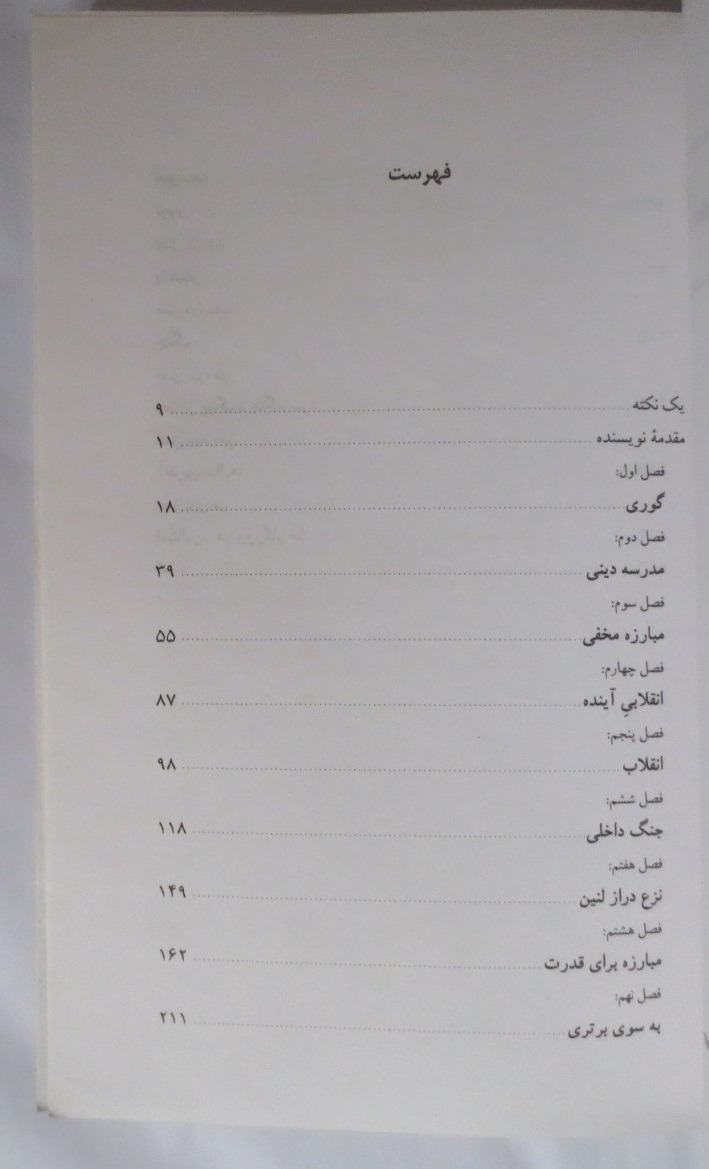 فهرست
یک نکته ۹
مقدمهٔ نویسنده ۱۱
فصل اول:
گوری ۱۸
فصل دوم:
مدرسه دینی ۳۹
فصل سوم:
مبارزه مخفی ۵۵
فصل چهارم:
انقلابیِ آینده ۸۷
فصل پنجم:
انقلاب ۹۸
فصل ششم:
جنگ داخلی ۱۱۸
فصل هفتم:
نزع دراز لنین ۱۴۹
فصل هشتم:
مبارزه برای قدرت ۱۶۲
فصل نهم:
به سوی برتری ۲۱۱